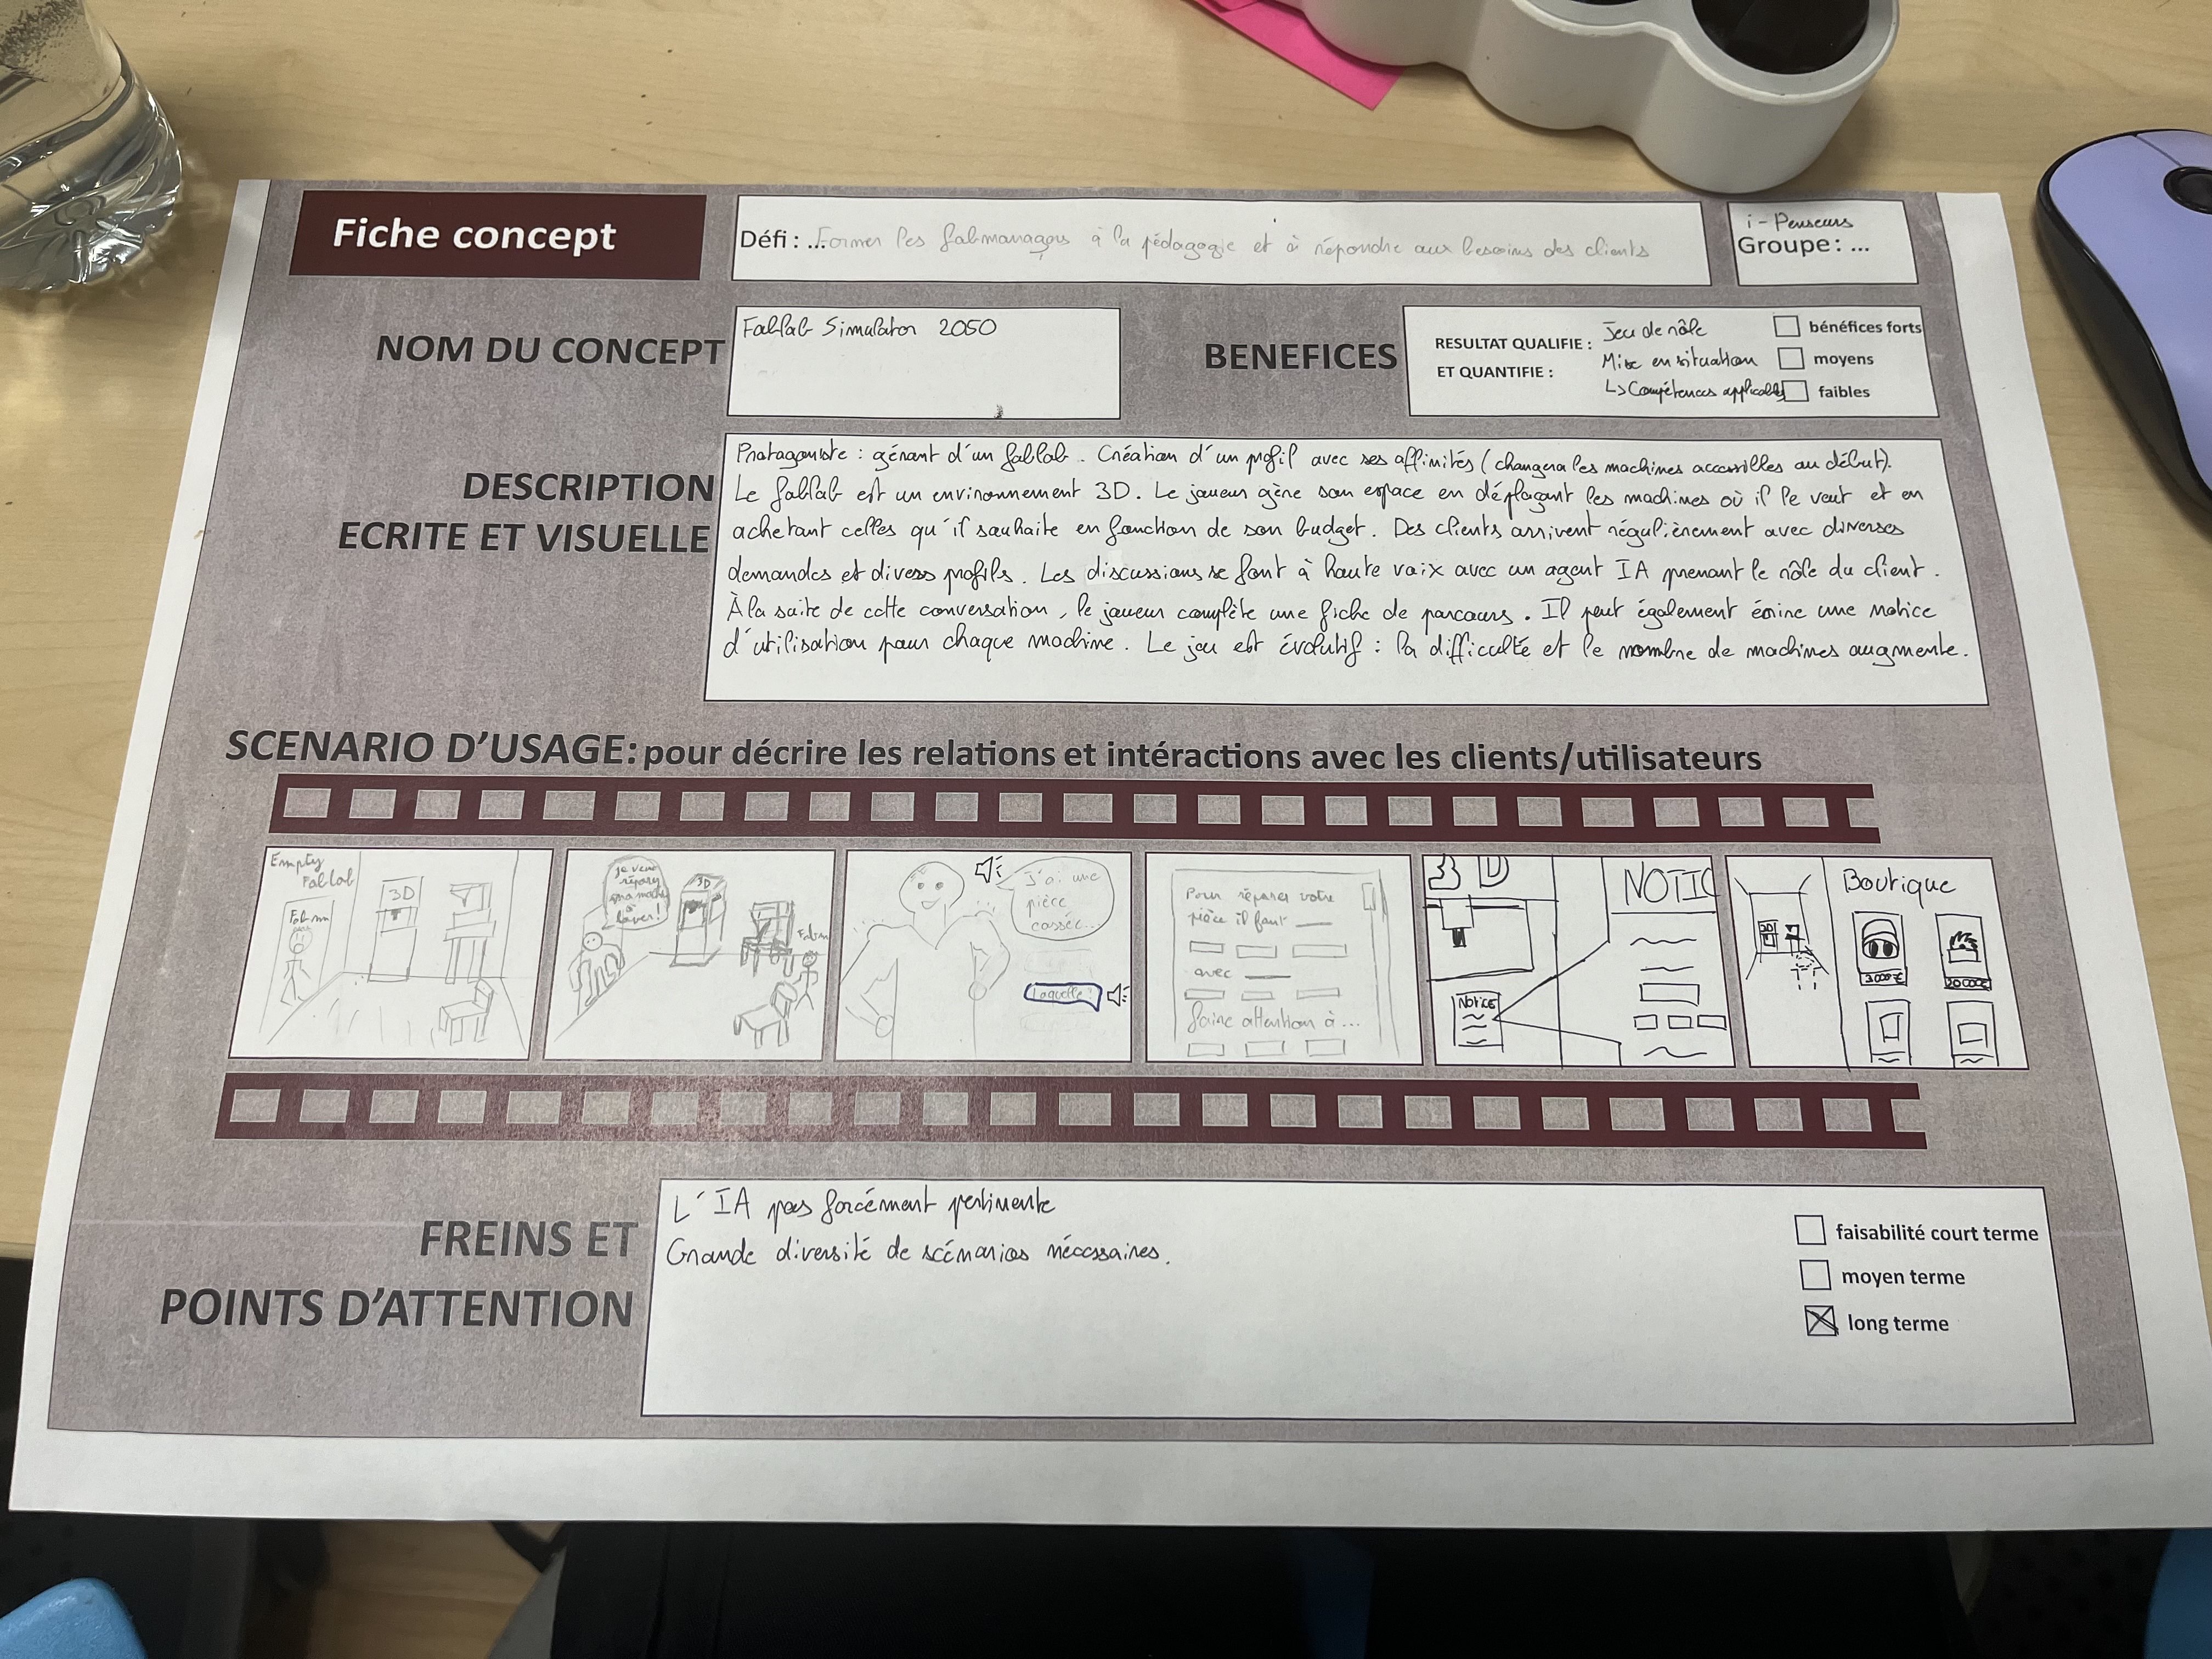 Fiche concept
Défi : ... Former les fabmanagers à la pédagogie et à répondre aux besoins des clients
i-Penseurs
Groupe : ...
NOM DU CONCEPT
Fablab Simulator 2050
BENEFICES
RESULTAT QUALIFIE :
ET QUANTIFIE :
Jeu de rôle
Mise en situation
↳ Compétences applicables
bénéfices forts
moyens
faibles
DESCRIPTION
ECRITE ET VISUELLE
Protagoniste : gérant d'un fablab. Création d'un profil avec ses affinités (changera les machines accessibles au début).
Le fablab est un environnement 3D. Le joueur gère son espace en déplaçant les machines où il le veut et en
achetant celles qu'il souhaite en fonction de son budget. Des clients arrivent régulièrement avec diverses
demandes et divers profils. Les discussions se font à haute voix avec un agent IA prenant le rôle du client.
À la suite de cette conversation, le joueur complète une fiche de parcours. Il peut également écrire une notice
d'utilisation pour chaque machine. Le jeu est évolutif : la difficulté et le nombre de machines augmente.
SCENARIO D'USAGE: pour décrire les relations et intéractions avec les clients/utilisateurs
Empty
FabLab
3D
je veux
réparer
ma machine
à
laver!
3D
J'ai une
pièce
cassée...
Laquelle?
Pour réparer votre
pièce il faut
avec
faire attention à ...
3D
Notice
NOTIC
3D
Boutique
3000€
20000€
FREINS ET
POINTS D'ATTENTION
L'IA pas forcément pertinente
Grande diversité de scénarios nécessaires.
faisabilité court terme
moyen terme
long terme